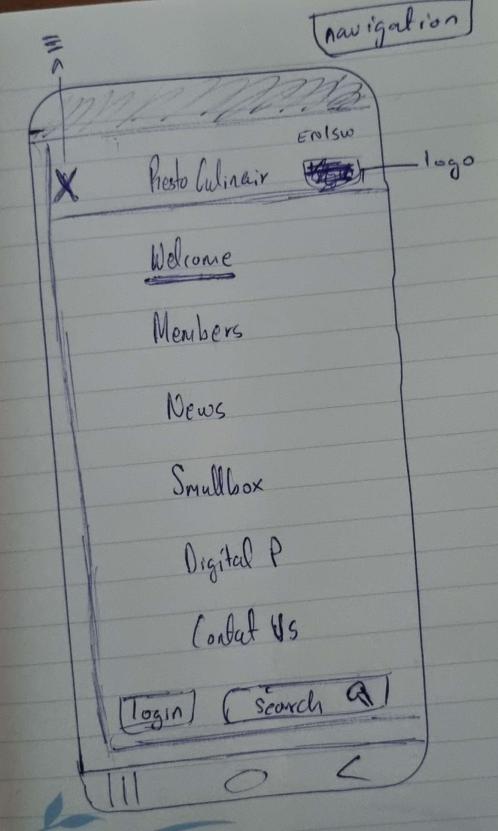 navigation
EN/SW
X Presto Culinair
logo
Welcome
Members
News
Smullbox
Digital P
Contat Us
login
Search